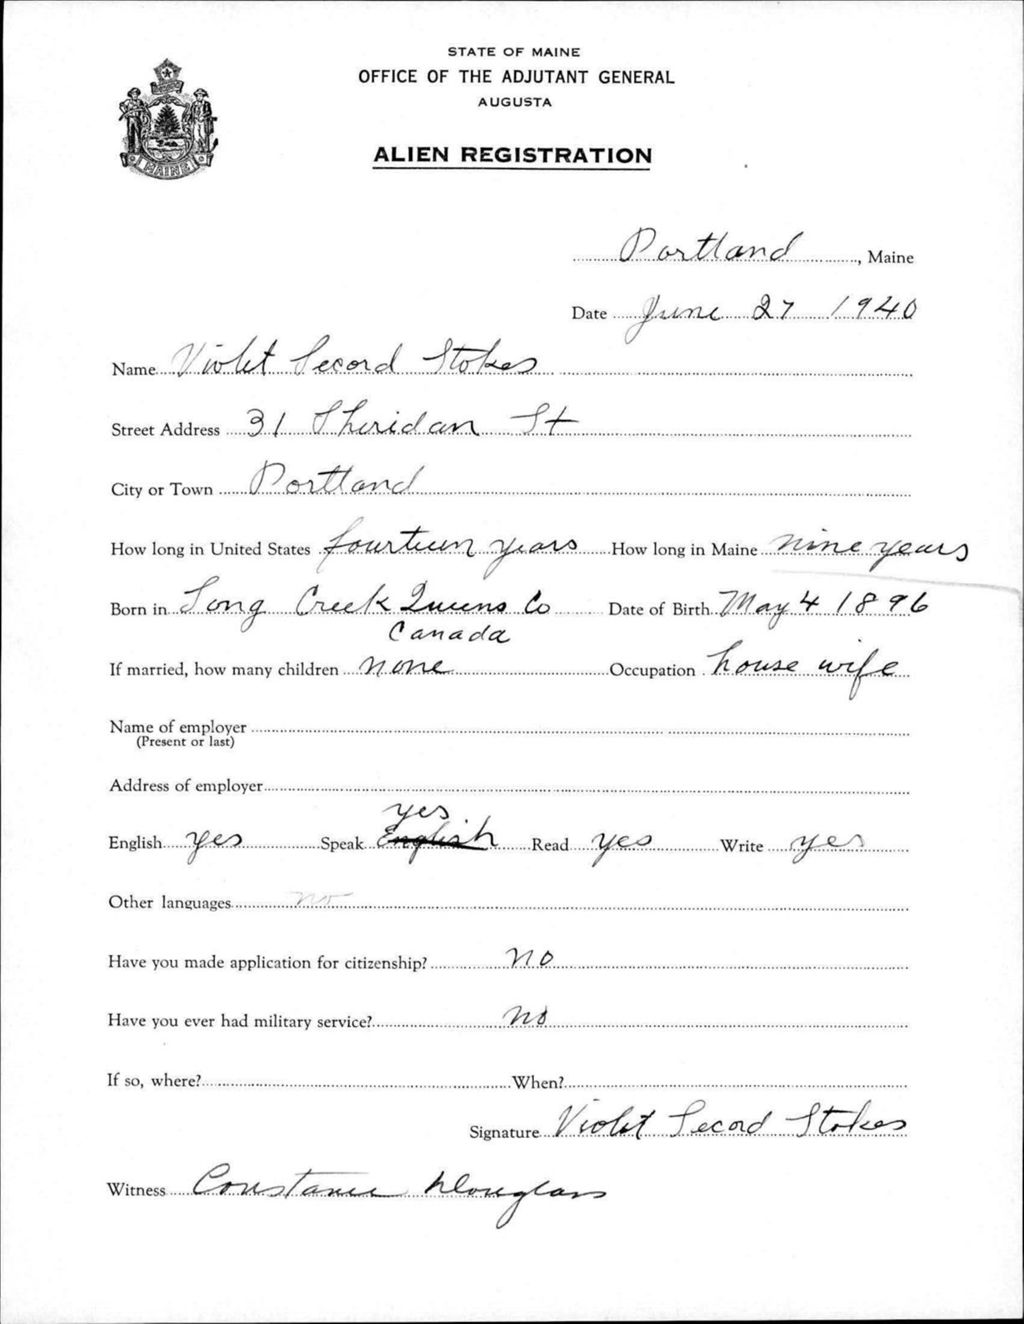 STATE OF MAINE
OFFICE OF THE ADJUTANT GENERAL
AUGUSTA
ALIEN REGISTRATION
MAINE
Portland, Maine
Date June 27 1940
Name Violet Secord Stokes
Street Address 31 Sheridan St
City or Town Portland
How long in United States fourteen years How long in Maine nine years
Born in Long Creek Queens Co Date of Birth May 4 1896
Canada
If married, how many children none Occupation house wife
Name of employer
(Present or last)
Address of employer
yes
English yes Speak English Read yes Write yes
Other languages no
Have you made application for citizenship? no
Have you ever had military service? no
If so, where? When?
Signature Violet Secord Stokes
Witness Constance Douglass